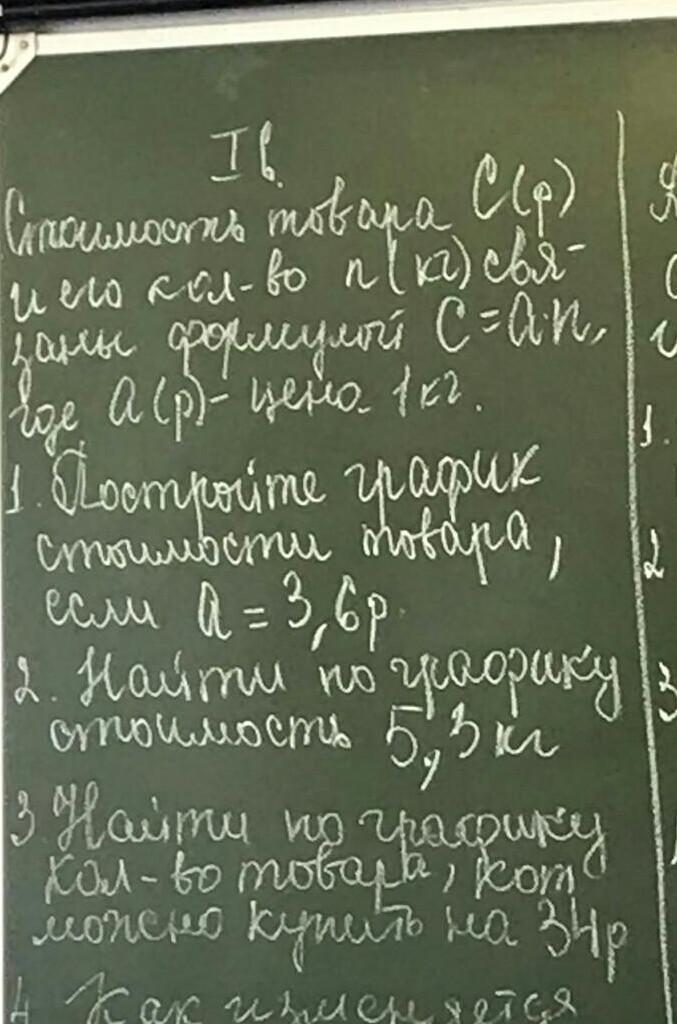 I в.
Стоимость товара С(р)
и его кол-во n(кг) свя-
заны формулой C=a·n,
где a(р)- цена 1кг.
1. Постройте график
стоимости товара,
если a = 3,6р.
2. Найти по графику
стоимость 5,3кг
3. Найти по графику
кол-во товара, кот
можно купить на 34р
4. Как изменяется
1.
2
3